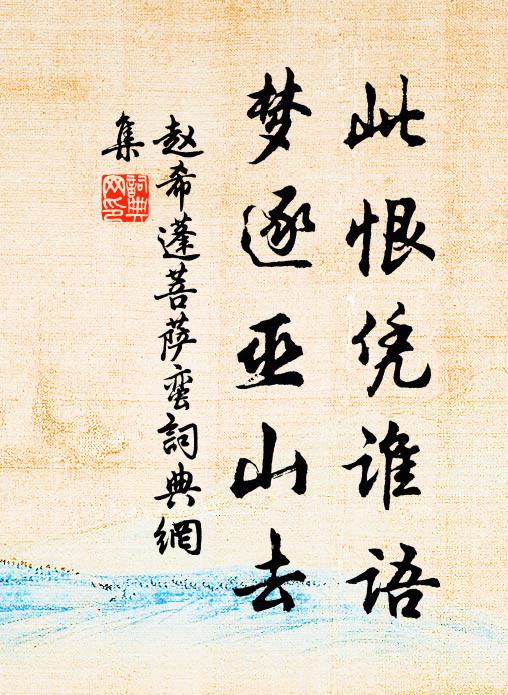 此恨凭谁语
梦逐巫山去
赵希蓬菩萨蛮詞典網
集
詞典
网印